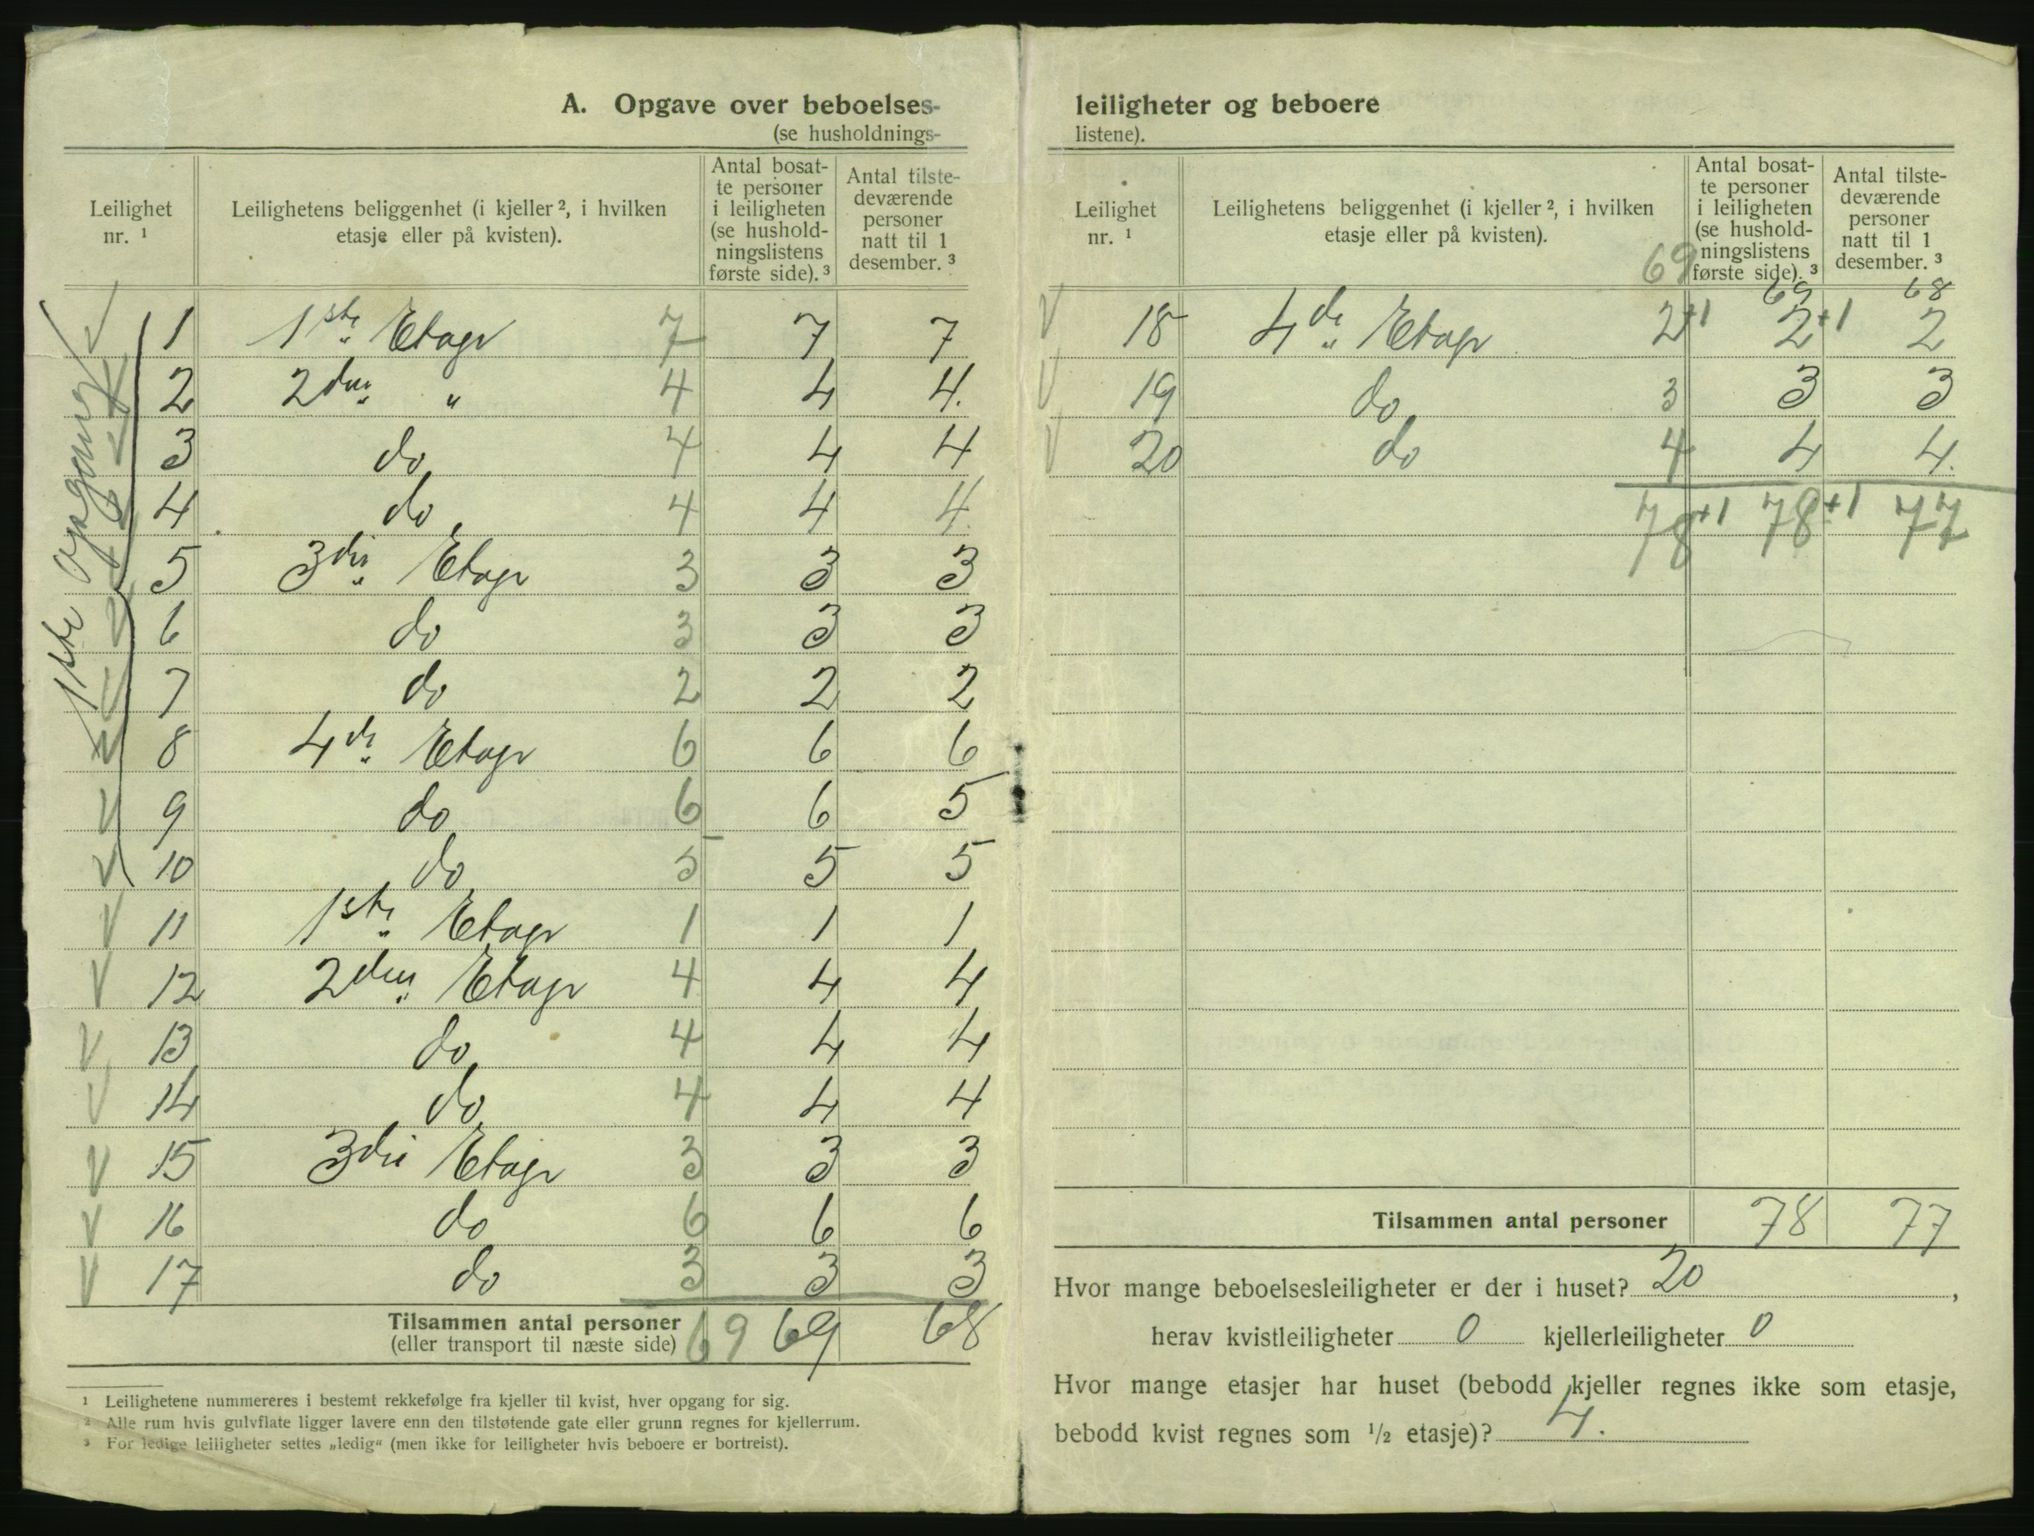 A. Opgave over beboelses-
(se husholdnings-
Leilighet nr. ¹
Leilighetens beliggenhet (i kjeller ², i hvilken etasje eller på kvisten).
Antal bosat-
te personer
i leiligheten
(se hushold-
ningslistens
første side). ³
Antal tilste-
deværende
personer
natt til 1
desember. ³
1ste Opgang
1 1ste Etage 7 7 7
2 2den " 4 4 4.
3 do 4 4 4
4 do 4 4 4.
5 3die Etage 3 3 3
6 do 3 3 3
7 do 2 2 2
8 4de Etage 6 6 6
9 do 6 6 5
10 do 5 5 5
11 1ste Etage 1 1 1
12 2den Etage 4 4 4
13 do 4 4 4
14 do 4 4 4
15 3die Etage 3 3 3
16 do 6 6 6
17 do 3 3 3
Tilsammen antal personer
(eller transport til næste side) 69 69 68
¹ Leilighetene nummereres i bestemt rekkefølge fra kjeller til kvist, hver opgang for sig.
² Alle rum hvis gulvflate ligger lavere enn den tilstøtende gate eller grunn regnes for kjellerrum.
³ For ledige leiligheter settes „ledig“ (men ikke for leiligheter hvis beboere er bortreist).
leiligheter og beboere
listene).
Leilighet nr. ¹
Leilighetens beliggenhet (i kjeller ², i hvilken etasje eller på kvisten).
Antal bosat-
te personer
i leiligheten
(se hushold-
ningslistens
første side). ³
Antal tilste-
deværende
personer
natt til 1
desember. ³
69 69 68
18 4de Etage 2+1 2+1 2
19 do 3 3 3
20 do 4 4 4.
78+1 78+1 77
Tilsammen antal personer 78 77
Hvor mange beboelsesleiligheter er der i huset? 20,
herav kvistleiligheter 0 kjellerleiligheter 0
Hvor mange etasjer har huset (bebodd kjeller regnes ikke som etasje,
bebodd kvist regnes som ½ etasje)? 4.